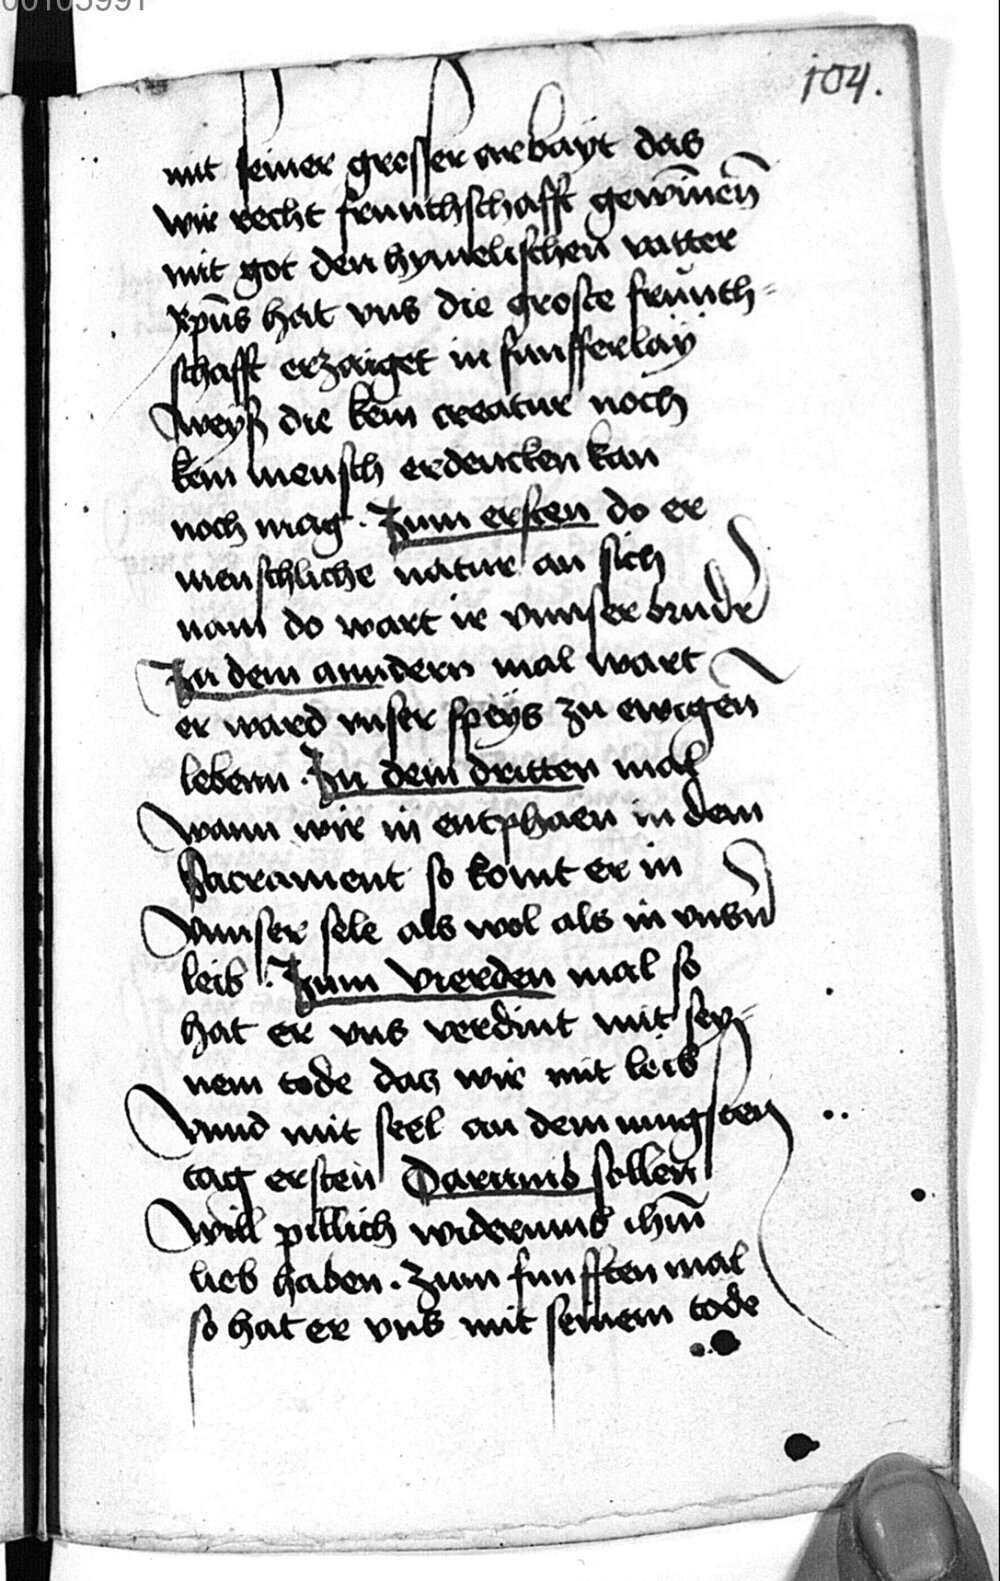 00105991
104.
mit seiner grosser arbayt das
wir recht frunthschafft gewīnen̄
mit got den hymelischen vatter
xpūs hat vns die groste frunth=
schafft erzaiget in funfferlaÿ
weyß die kein creatur noch
kein mensch erdencken kan
noch mag. Zum ersten do er
menschliche natur an sich
nam do wart ir vnnser brudr
Zu dem anndern mal wart
er ward vnser speÿs zu ewigen̄
lebenn. Zu dem dritten mal
wann wir in entphaen in dem
Sacrament so komt er in
vnnser sele als wol als in vnsn̄
leib. Zum vierden mal so
hat er vns verdint mit sey=
nem tode das wir mit leib
vnnd mit seel an dem iungsten
tag ersten Darumb sollen
will pillich widerumb ihm̄
lieb haben. Zum funfften mal
so hat er vns mit seinem tode